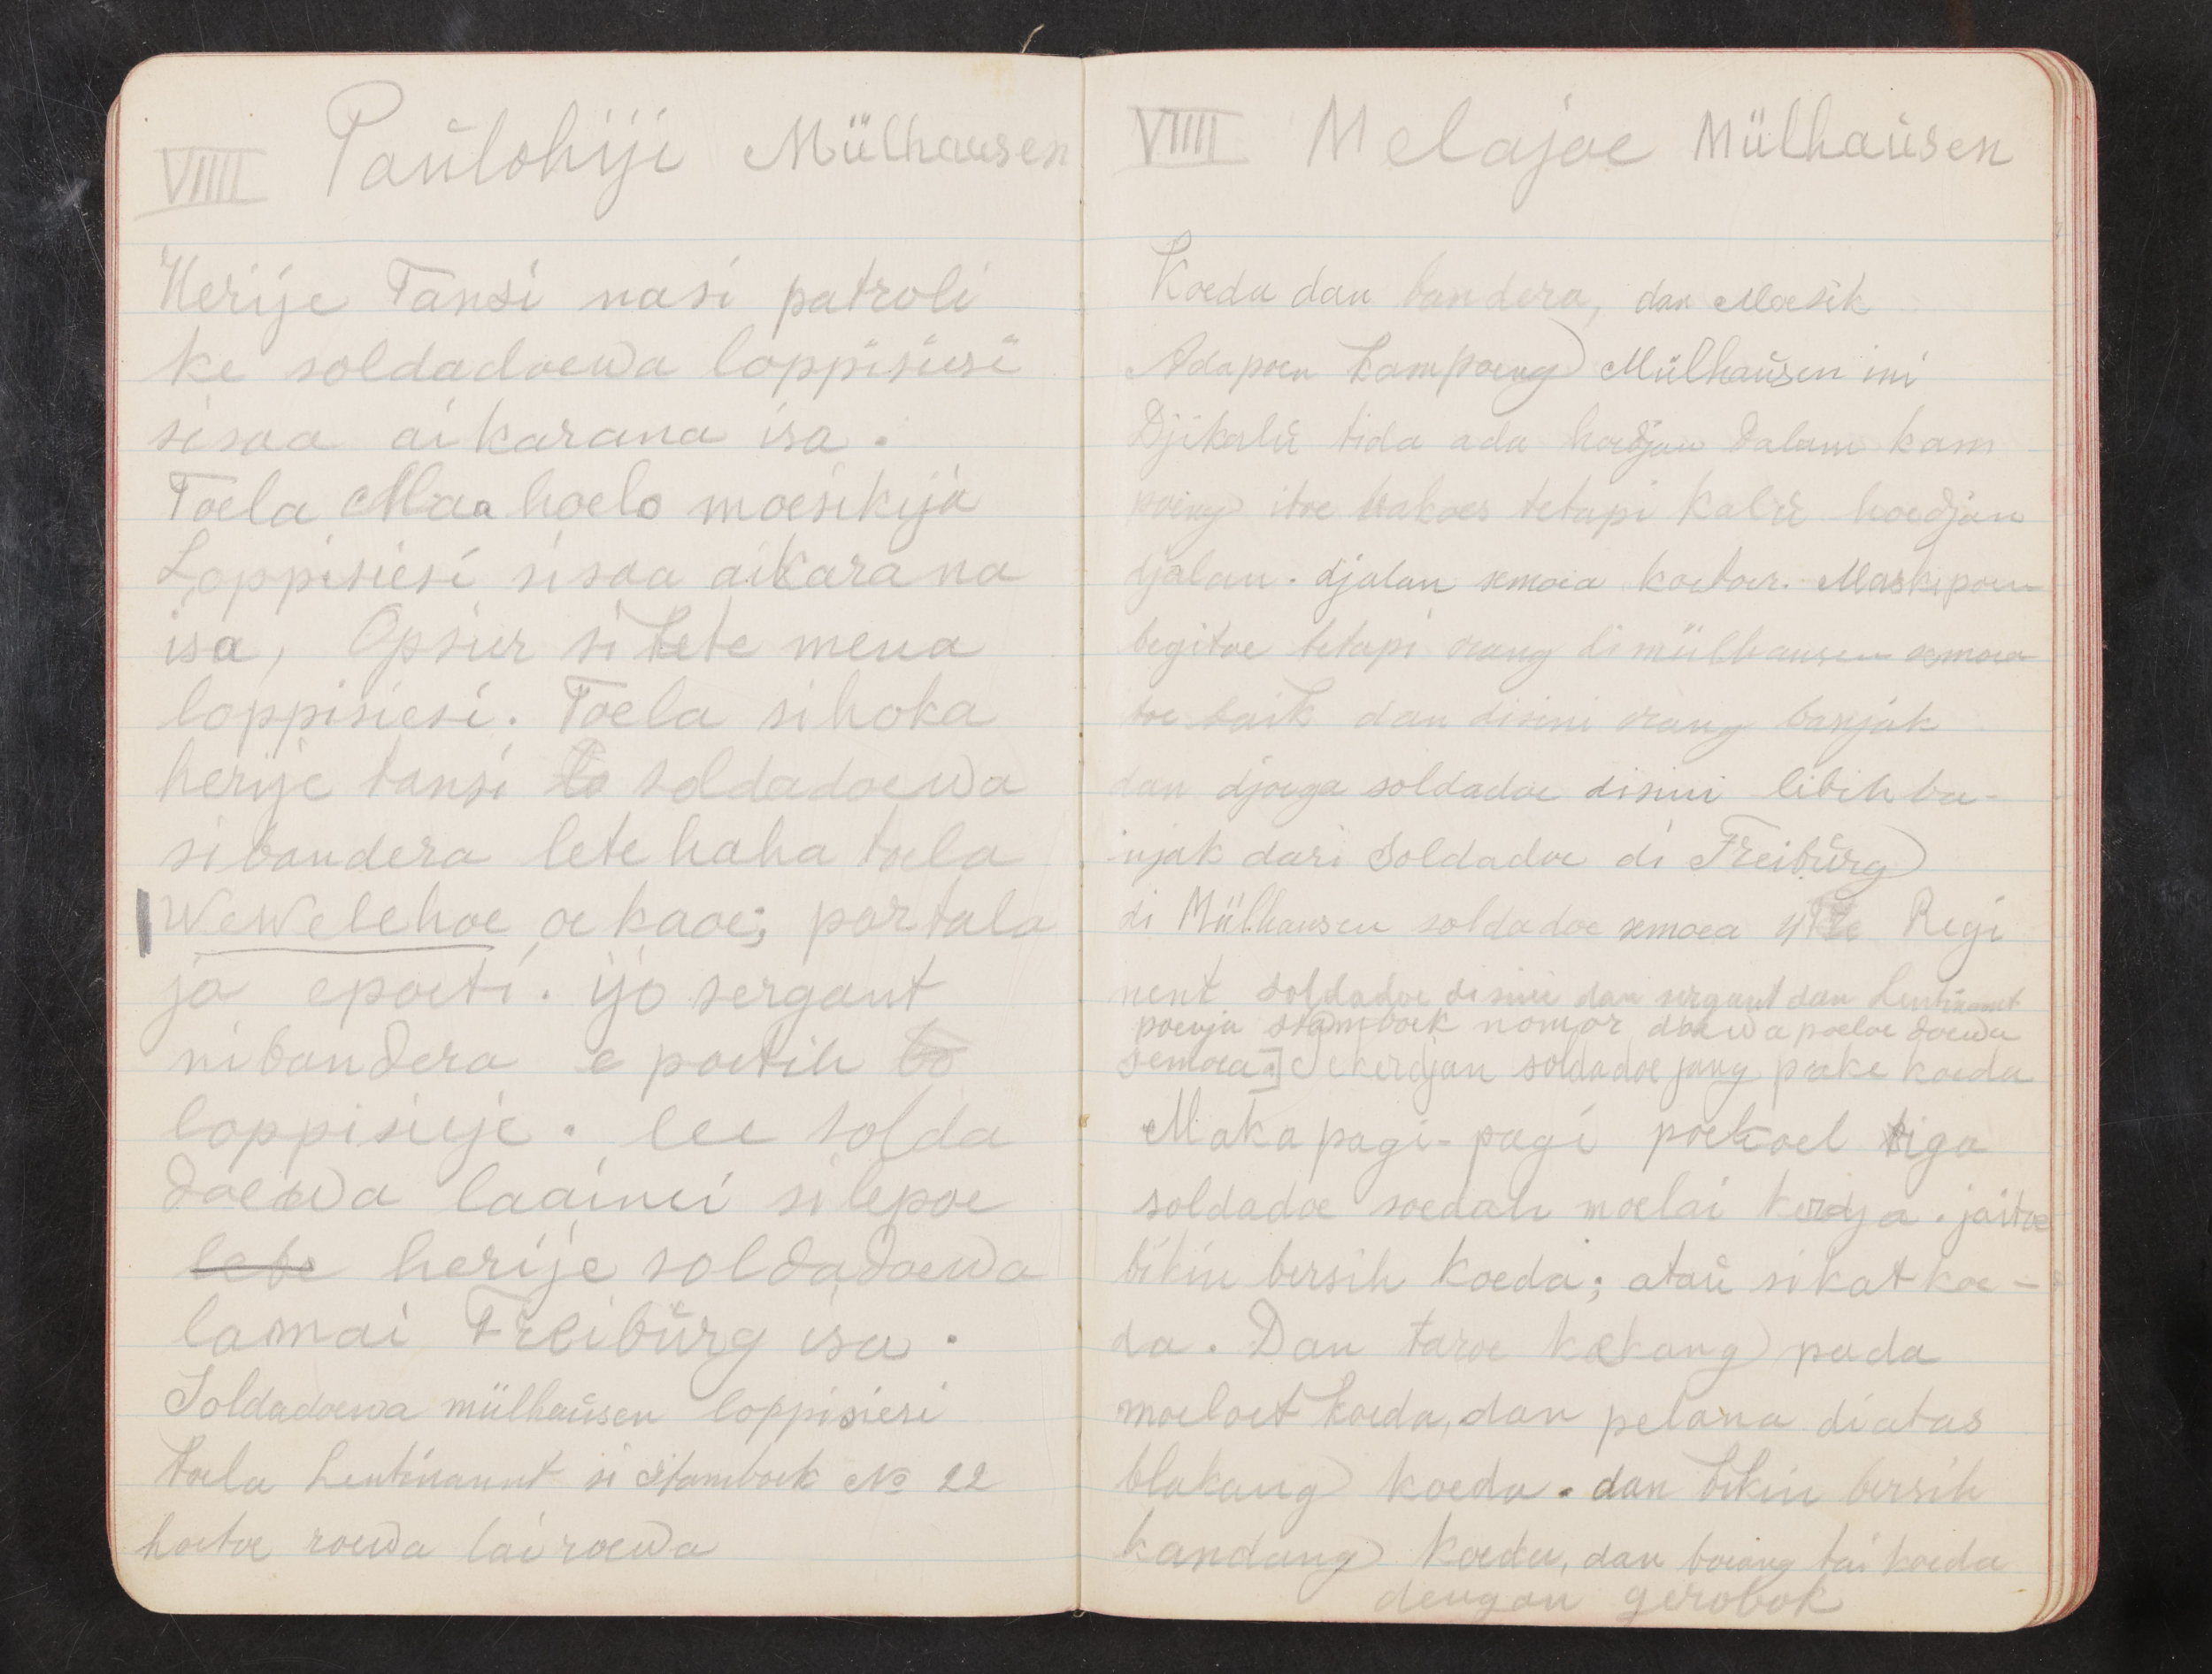 VIIII Paŭlohiji Mülhausen
Herije Tansi nasi patroli
ke soldadoewa loppisiesi
sisaa aikarana isa.
Toela Maa hoelo moesikija
Loppisiesi sisaa aikarana
isa, Opsier si tete mena
loppisiesi. Toela sihoka
herije tansi to soldadoewa
sibandera lete haha toela
Wewelehoe oe kaoe; partala
ja epoeti. ijo sergant
nibandera e poetih to
loppisieje. lee solda
doewa laainei silepoe
lete herije soldadoewa
lamai Freibŭrg isa.
Soldadoewa mülhaŭsen loppisiesi
toela Leutinannt si Stamboek No 22
hoetoe roewa lai roewa
VIIII Melajoe Mülhaŭsen
Koeda dan bandera, dan Moesik
Adapoen kampoeng Mülhaŭsen ini
Djikalŭ tida ada hoedjan dalam kam
poeng itoe bakoes tetapi kalŭ hoedjan
djalan. djalan semoea koetoer. Maskipoen
begitoe tetapi orang dimülhausen semoea
toe baik dan disini orang banjak
dan djoega soldadoe disini libih ba-
njak dari soldadoe di Freibŭrg
di Mülhausen soldadoe semoea Regi
nent soldadoe disini dan sergant dan Leutinannt
poenja stamboek nomor doewa poeloe doewa
semoea.] Pekerdjan soldadoe jang pake koeda
Maka pagi-pagi poekoel tiga
soldadoe soedah moelai kerdja. jaitoe
bikin bersih koeda; ataŭ sikat koe-
da. Dan taroe kekang pada
moeloet koeda, dan pelana diatas
blakang koeda. dan bikin bersih
kandang koeda, dan boeang tai koeda
dengan gerobok